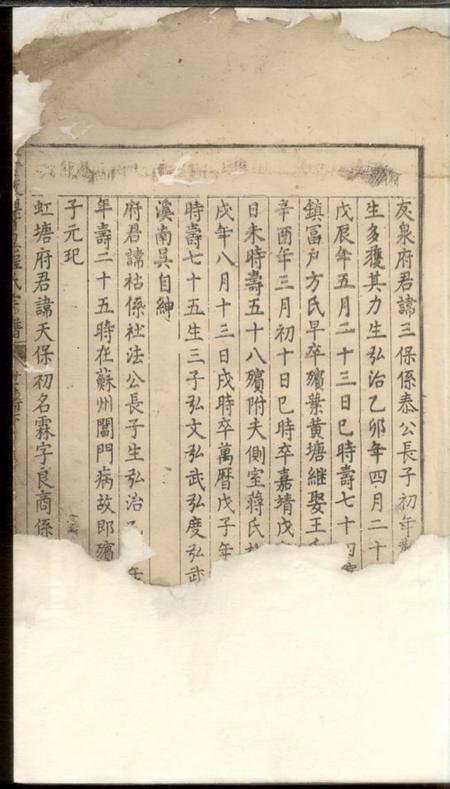 友泉府君諱三保係泰公長子初年
生多獲其力生弘治乙卯年四月二十
戊辰年五月二十三日巳時壽七十四
鎮冨戶方氏早卒殯葉黄塘繼娶王氏
辛酉年三月初十日巳時卒嘉靖戊
日未時壽五十八殯附夫側室蔣氏
戌年八月十三日戌時卒萬曆戊子年
時壽七十五生三子弘文弘武弘度弘武
溪南吳自紳
府君諱祜係社法公長子生弘治乙
年壽二十五時在蘇州閶門病故即殯
子元玘
虹塘府君諱天保初名霖字良商係